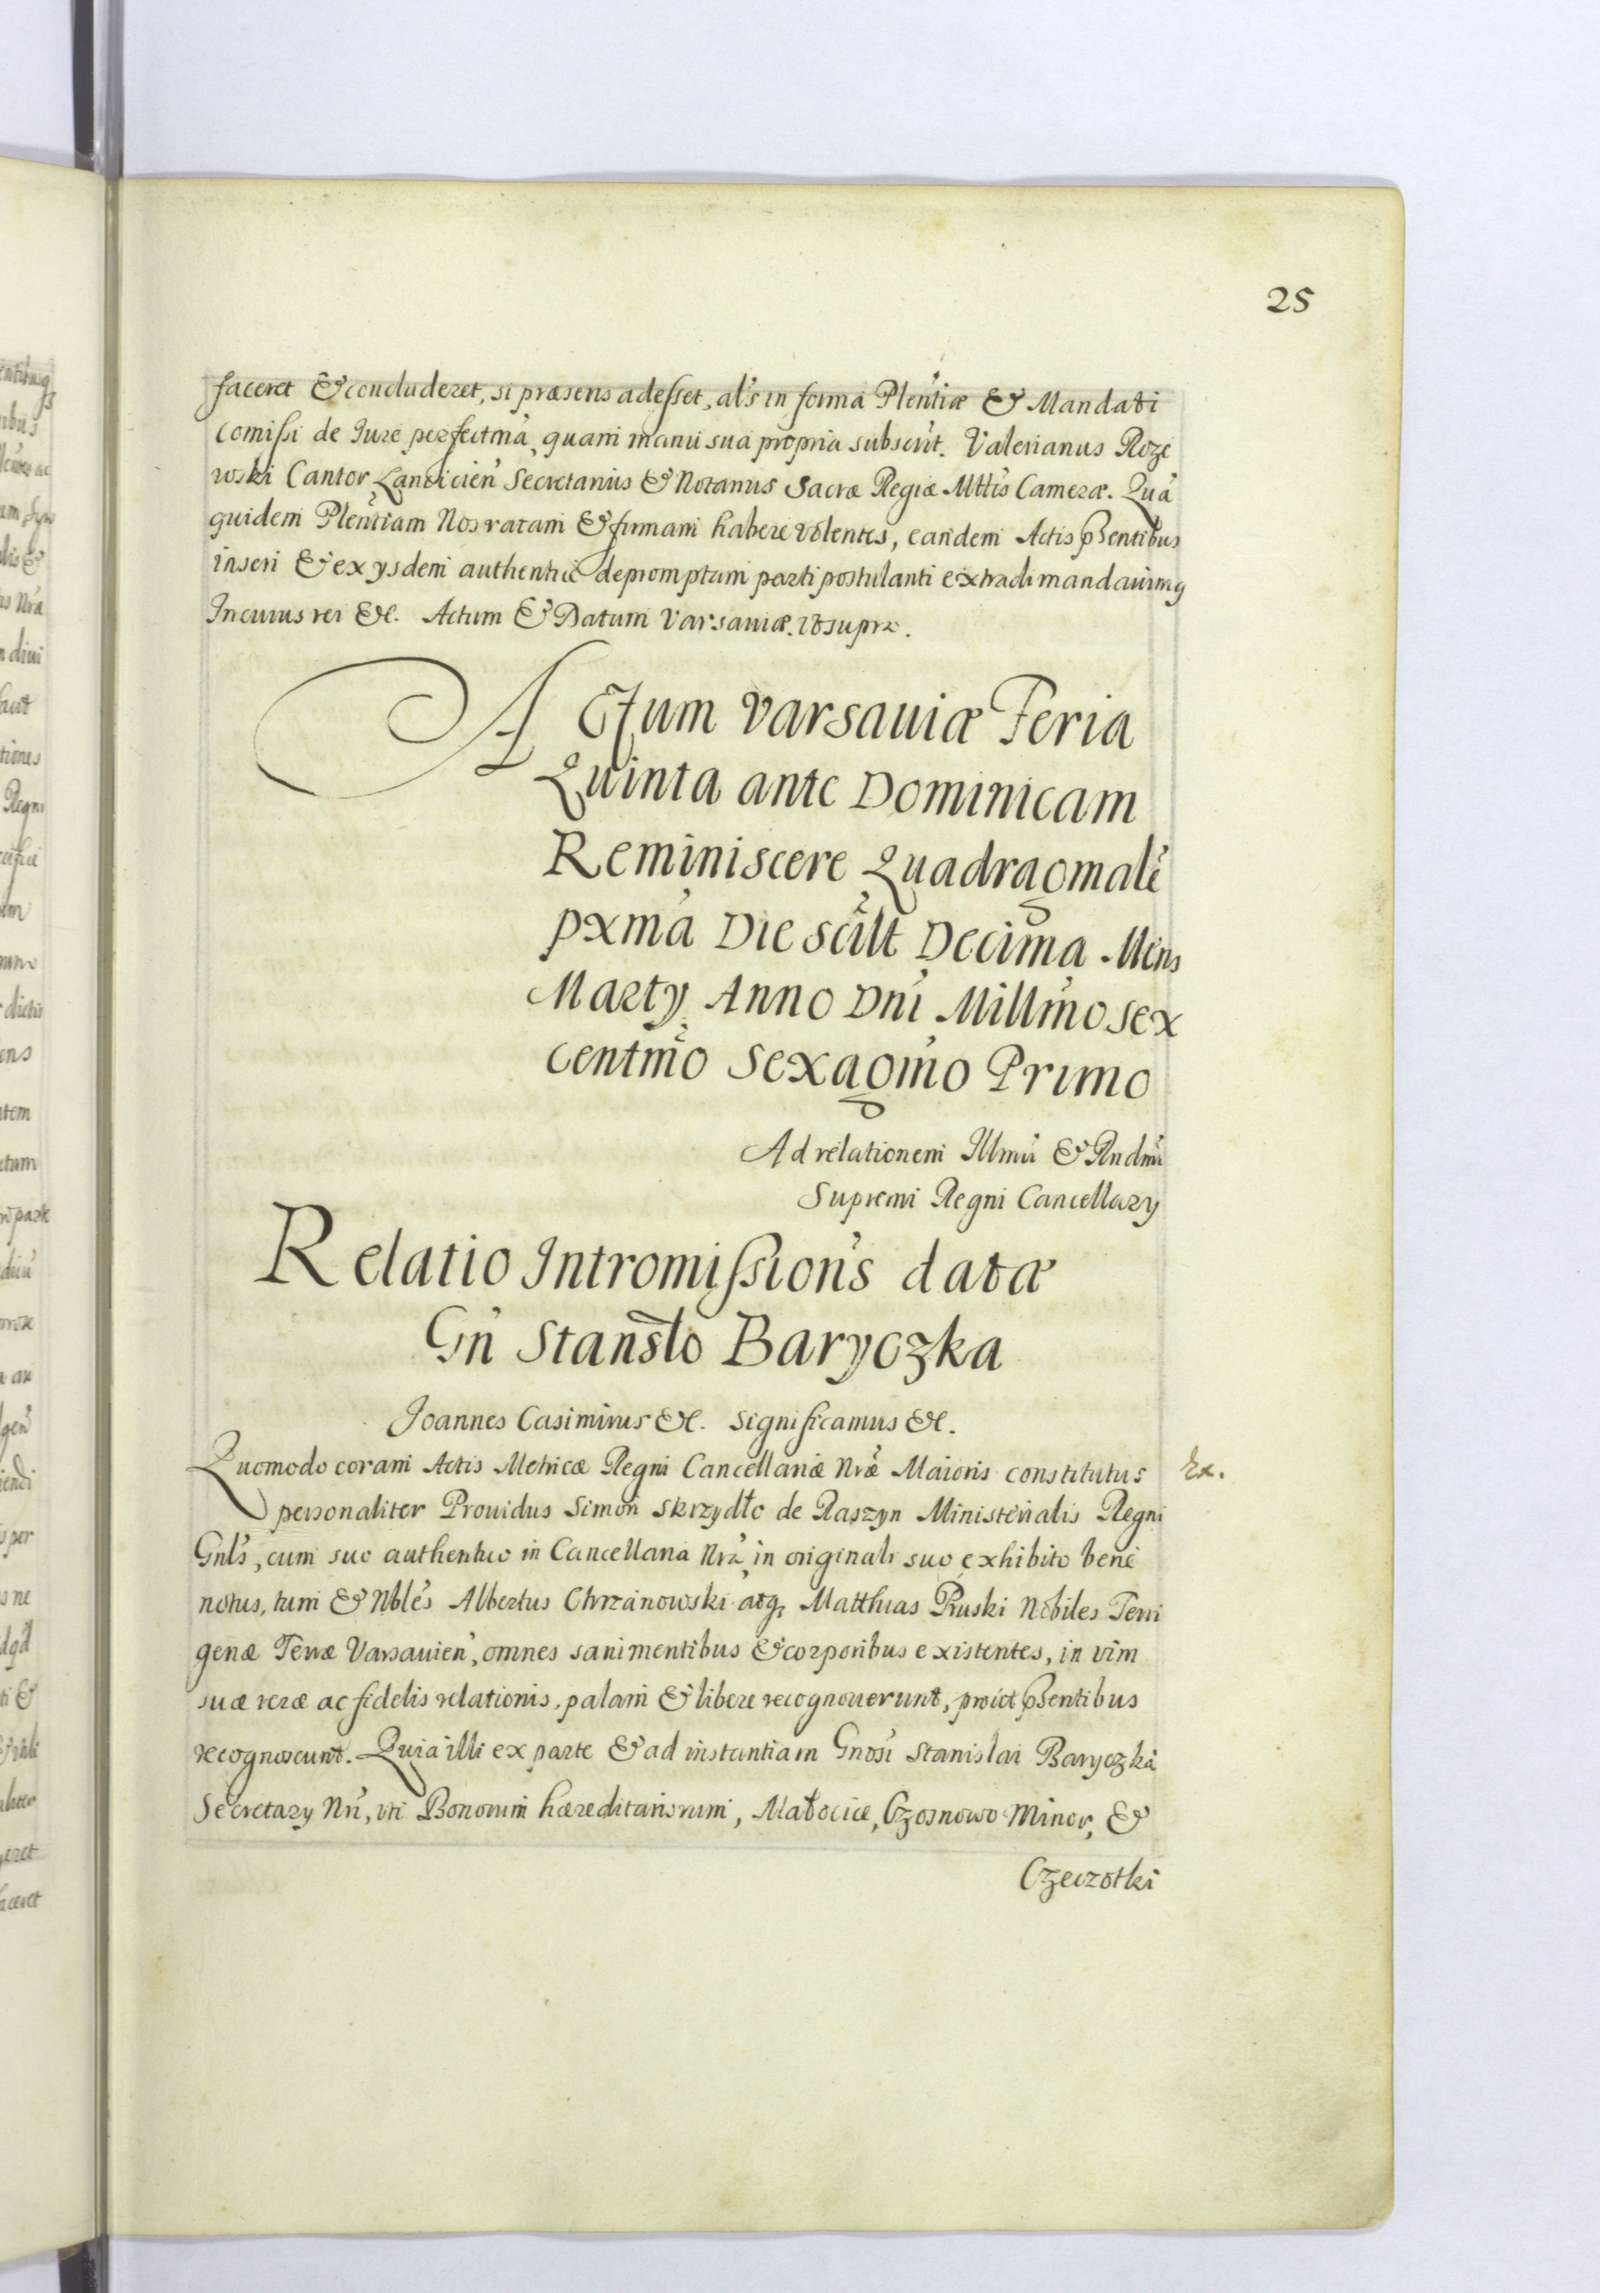 25
faceret & concluderet, si præsens adesset, al's in forma Plen'tiæ & Mandati
comissi de Iure perfectmâ, quam manu sua propria subscrit. Valerianus Roze
wski Cantor Lancicien' Secretarius & Notarius Sacræ Regiæ Mttis Cameræ. Quâ
quidem Plen'tiam Nos ratam & firmam habere volentes, eandem Actis pñsentibus
inseri & ex ysdem authentice depromptam parti postulanti extradi mandauimus
In cuius rei &c. Actum & Datum Varsauiæ. vt supra.
Actum Varsauiæ Feria
Quinta ante Dominicam
Reminiscere Quadragmale
pxma Die scilt Decima Mens
Marty Anno Dni Millmo sex
centmo Sexagmo Primo
Ad relationem Illmi & Rndmi
Supremi Regni Cancellary
Relatio Intromission's datæ
Gn' Stansło Baryczka
Joannes Casimirus &c. Significamus &c.
Quomodo coram Actis Metricæ Regni Cancellariæ Nræ Maioris constitutus
Ex.
personaliter Prouidus Simon Skrzydło de Raszyn Ministerialis Regni
Gnl's, cum suo authentico in Cancellaria Nra in originali suo exhibito bene
notus, tum & Nbles Albertus Chrzanowski atq Matthias Pruski Nobiles Terri
genæ Terræ Varsauien', omnes sani mentibus & corporibus existentes, in vim
suæ veræ ac fidelis relationis, palam & libere recognouerunt, prout pñsentibus
recognoscunt. Quia illi ex parte & ad instantiam Gnosi Stanislai Baryczka
Secretary Nri, vti Bonorum hæreditariorum, Małocice, Czosnowo Minor, &
Czeczotki